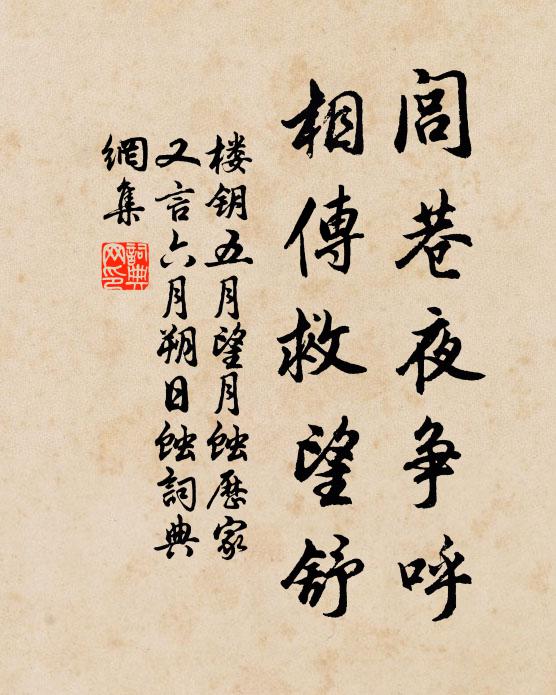 閭巷夜争呼
相傳救望舒
楼钥五月望月蝕歷家
又言六月朔日蝕詞典
網集
詞典
网印